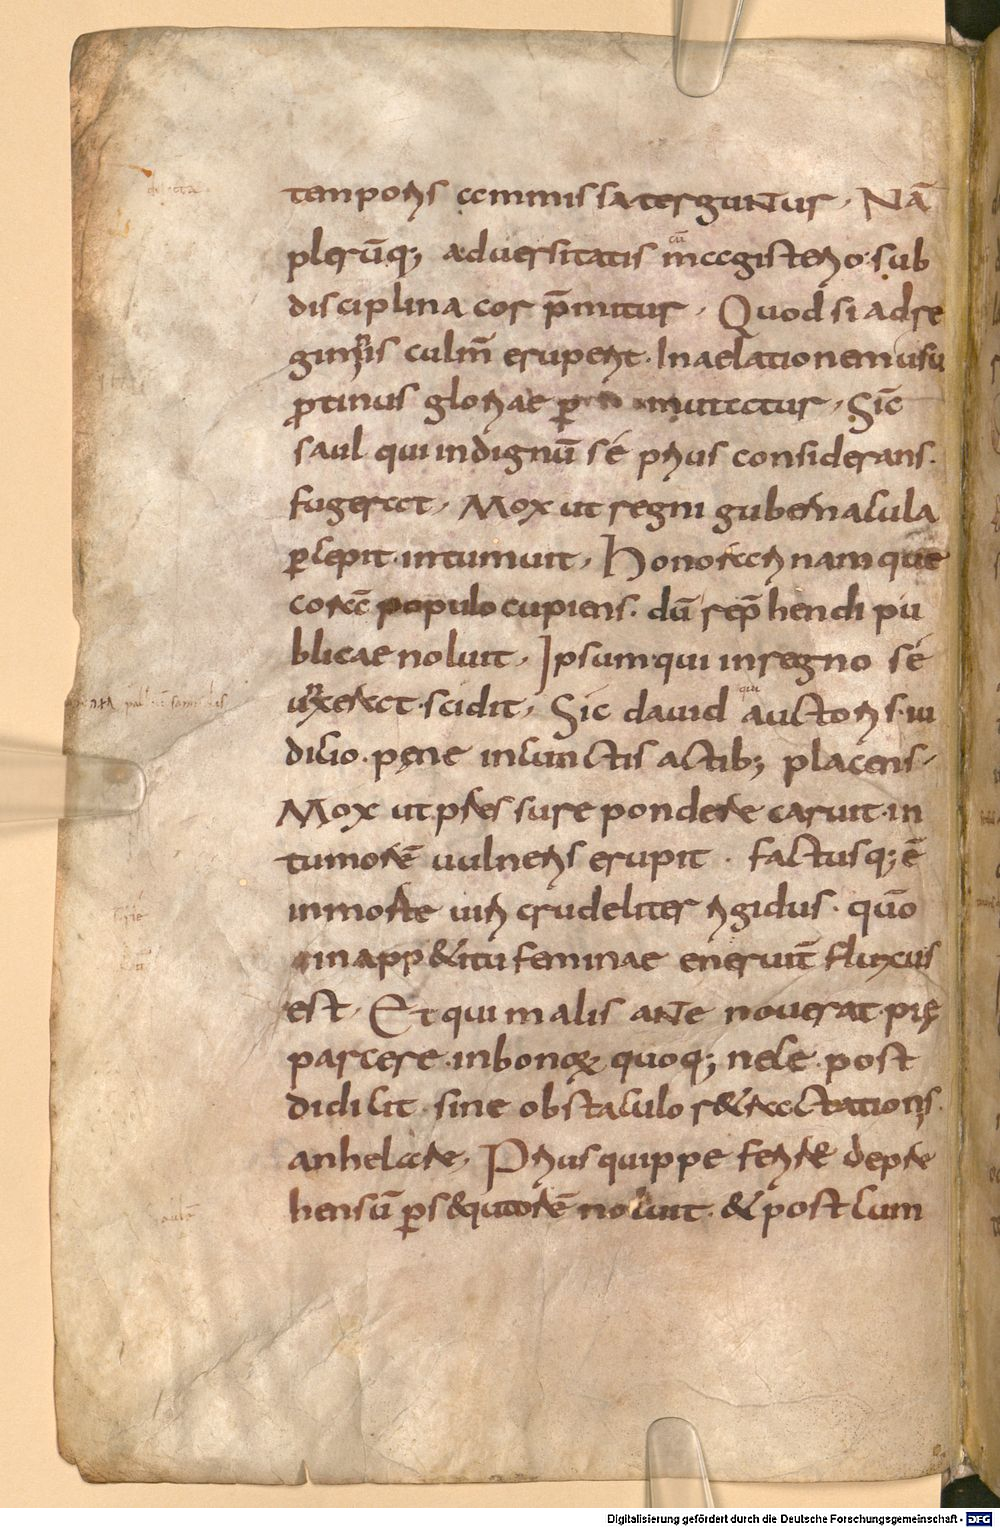 temporis commissa terguntur. Nā
plerūq; adversitatis magisterio sub
disciplina cor p̄mitur. Quod si ad re
giminis culm̄ eruperit. In aelationem usu
protinus gloriae p mutatur. Sic̄
saul qui indignū sé prius considerans.
fugerat. Mox ut regni gubernacula
p̲cepit intumuit. Honorari namque
corā populo cupiens. dū rep̄hendi pu
blicae noluit. Ipsum qui in regno sé
unxerat scidit. Sic david auctoris iu
dicio. pene in cunctis actib; placens.
Mox ut p̄ssure pondere caruit. in
tumorē vulneris erupit. factusq; ē
in morte viri crudeliter rigidus. quō
in app&itu feminae eneruit̄ fluxus
est. Et qui malis ante noverat pię
parcere. in bonorum quoq; nece. post
didicit. sine obstaculo r&ractationis.
anhelare. Prius quippe ferire depre
hensū p̲s&qutorē noluit. & post cum
cū
qui
Digitalisierung gefördert durch die Deutsche Forschungsgemeinschaft - DFG